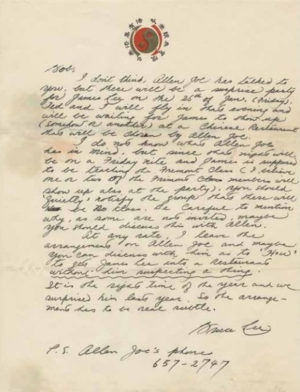 Bob:
I don't think Allen Joe has talked to
you, but there will be a surprise party
for James Lee on the 25th of Jan. (Friday).
Ted and I will fly in that evening and
will be waiting for James to show up
(somehow or another) at a Chinese Restaurant
that will be chosen by Allen Joe.
I do not know what Allen Joe
has in mind, but since that night will
be on a Friday nite and James is supposed
to be teaching the Fremont Class (I believe
one or two of the Fremont Class members will
show up also at the party), you should
quietly notify the group that there will
be no class. Be careful to mention
why, as some are not invited, maybe
you should discuss this with Allen.
At any rate, I leave the
arrangement on Allen Joe and maybe
you can discuss with him as to "How"
to get James Lee into a Restaurant
without him suspecting a thing.
It is the right time of the year and we
surprise him last year. So the arrange-
ment has to be real subtle.
Bruce Lee
P.S. Allen Joe's phone
657-2747